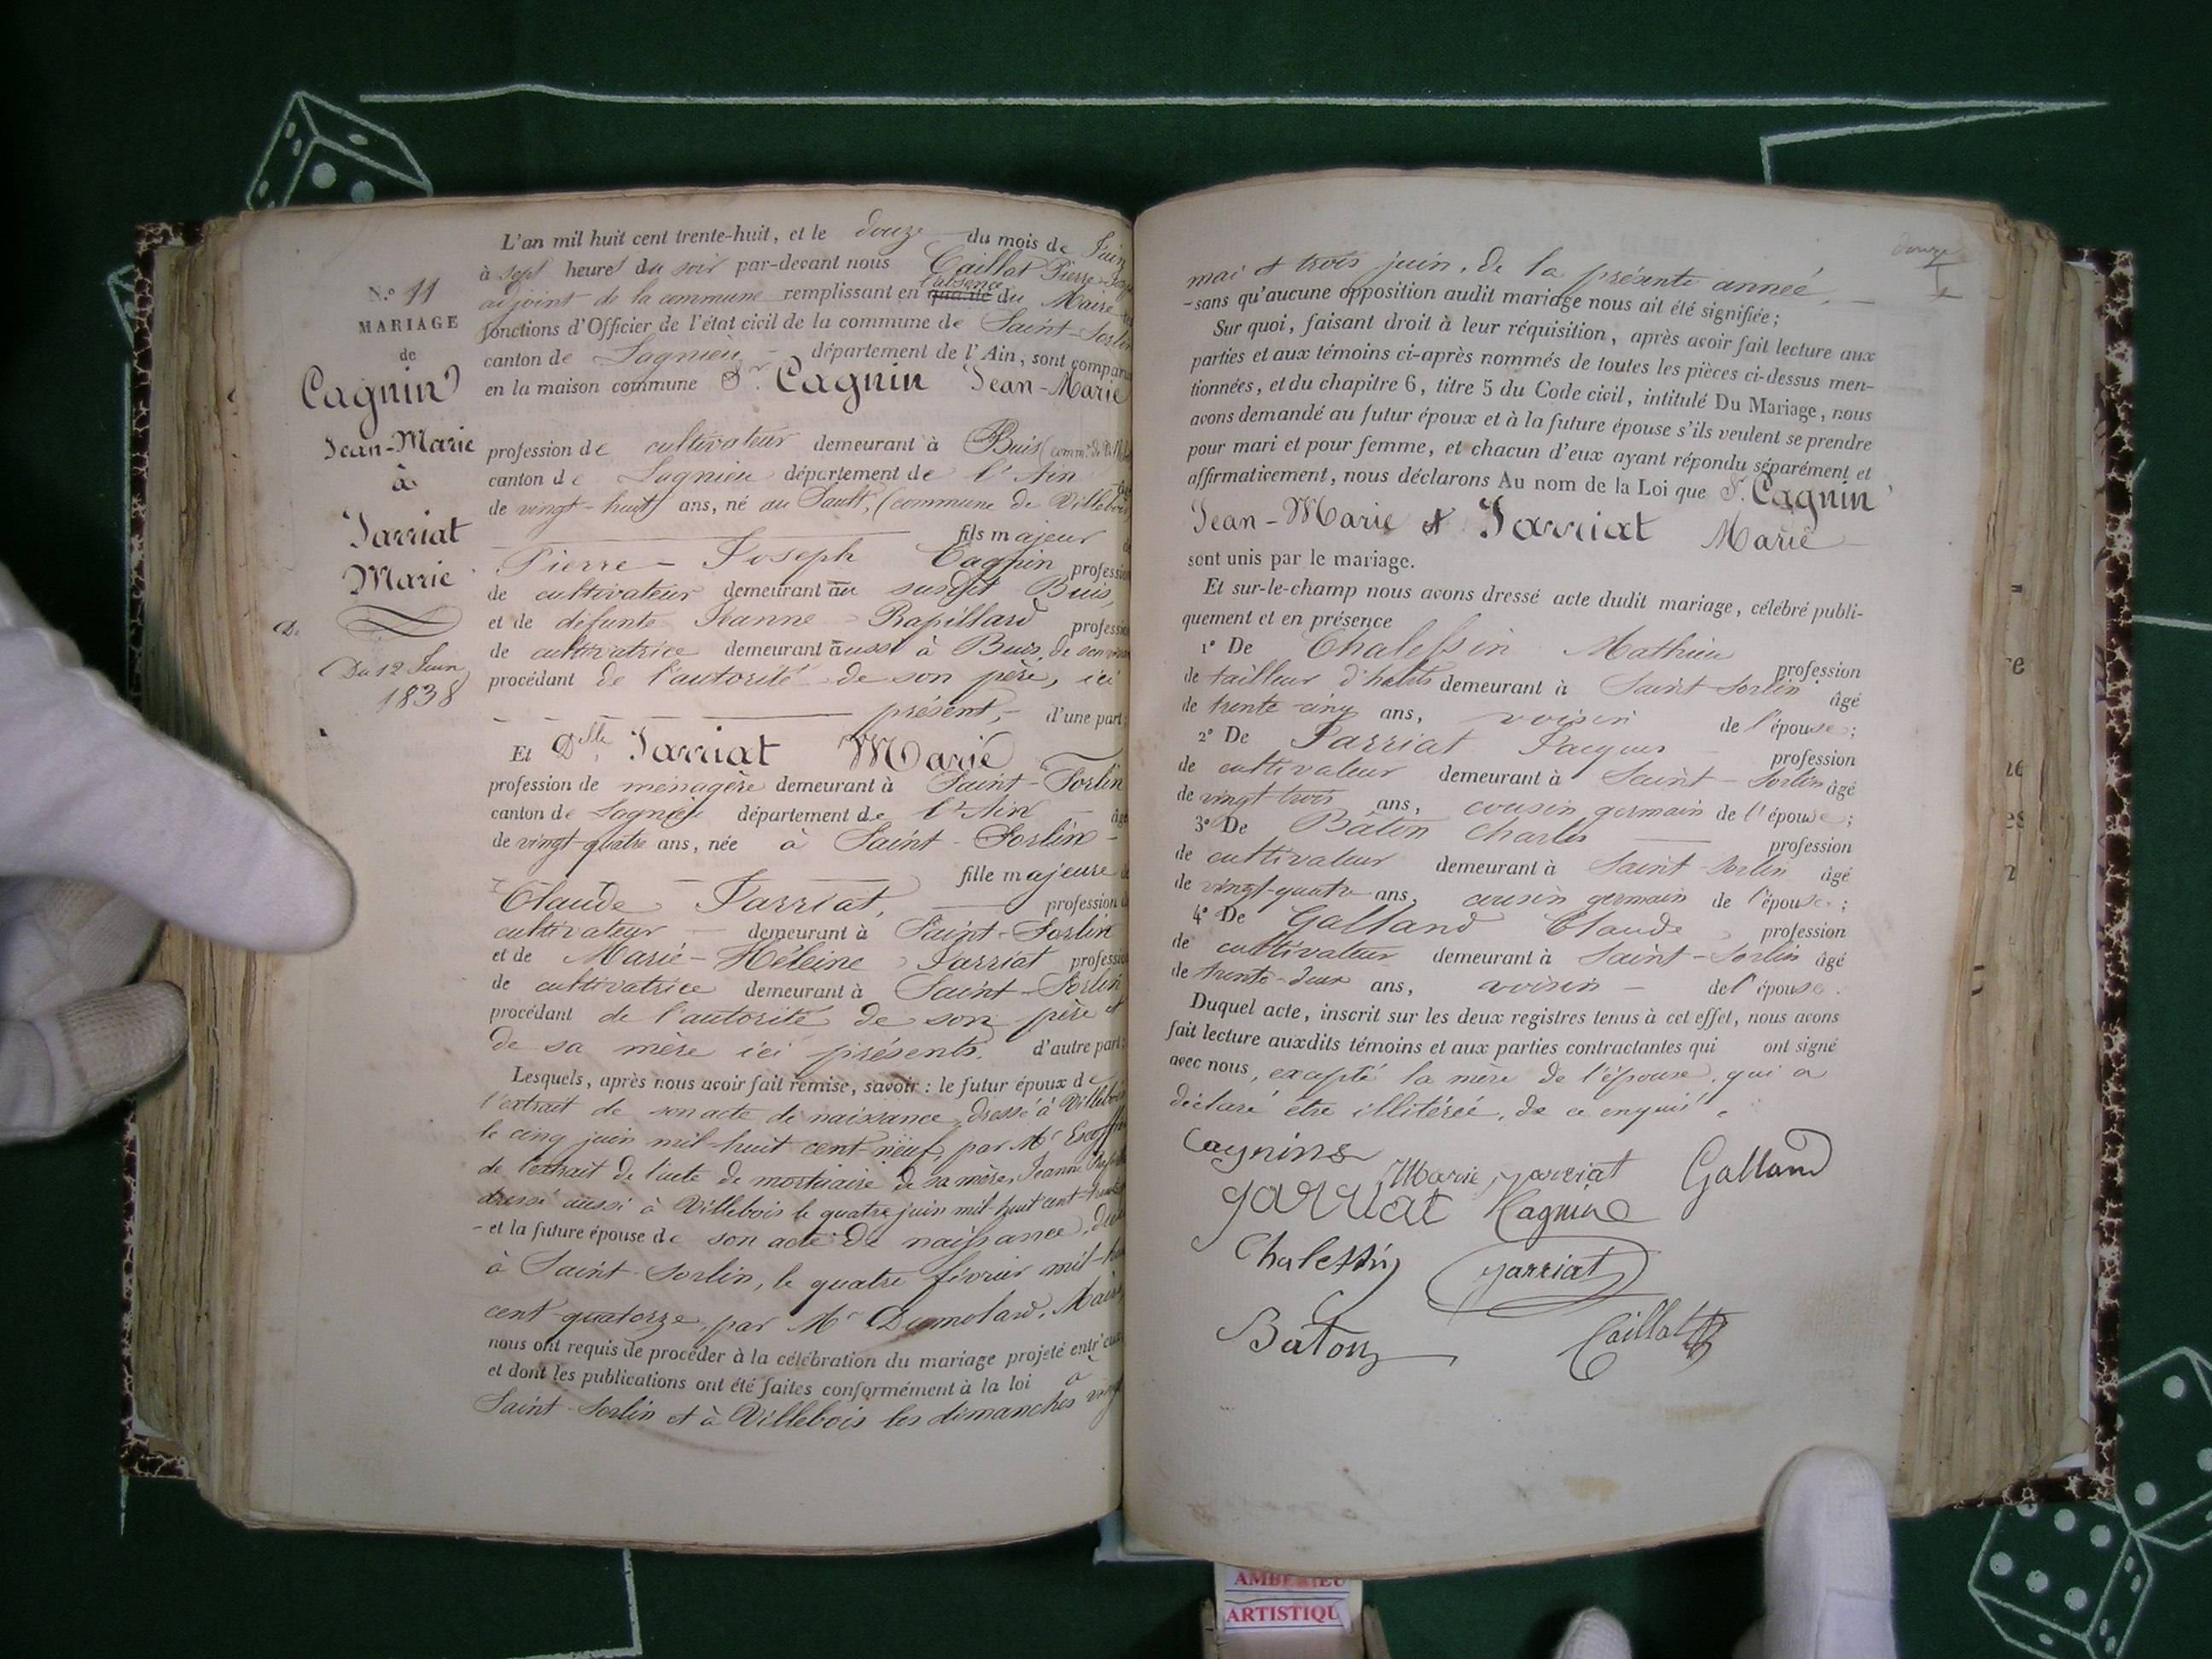 N.º 11
MARIAGE
de
Cagnin
Jean-Marie
à
Jarriat
Marie
Du 12 Juin
1838
L'an mil huit cent trente-huit, et le douze du mois de Juin
à sept heures du soir par-devant nous Caillat Pierre-
adjoint de la commune remplissant en l'absence du Maire
fonctions d'Officier de l'état civil de la commune de Saint-Sorlin
canton de Lagnieu département de l'Ain, sont
en la maison commune Sr. Cagnin Jean-Marie
profession de cultivateur demeurant à Buis
canton de Lagnieu département de l'Ain
de vingt-huit ans, né au Sault, (commune de Villebois
fils majeur
Pierre-Joseph Cagnin
de cultivateur demeurant au susdit Buis,
et de défunte Jeanne Rapillard
de cultivatrice demeurant aussi à Buis, de son
procédant de l'autorité de son père, ici
présent, d'une part;
Et Dlle Jarriat Marie
profession de ménagère demeurant à Saint-Sorlin
canton de Lagnieu département de l'Ain
de vingt-quatre ans, née à Saint-Sorlin
fille majeure
Claude Jarriat, profession
cultivateur demeurant à Saint-Sorlin
et de Marie-Héleine Jarriat
de cultivatrice demeurant à Saint-Sorlin
procédant de l'autorité de son père et
de sa mère ici présents. d'autre part;
Lesquels, après nous avoir fait remise, savoir : le futur époux de
l'extrait de son acte de naissance, dressé à Villebois
le cinq juin mil-huit cent-neuf, par Mr
de l'extrait de l'acte de mortuaire de sa mère, Jeanne
dressé aussi à Villebois le quatre juin mil-huit cent-
- et la future épouse de son acte de naissance,
à Saint-Sorlin, le quatre février mil-
cent-quatorze, par Mr Dumolard, Maire,
nous ont requis de procéder à la célébration du mariage projeté entr'eux
et dont les publications ont été faites conformément à la loi à
Saint-Sorlin et à Villebois les dimanches
douze
mai et trois juin, de la présente année,
- sans qu'aucune opposition audit mariage nous ait été signifiée;
Sur quoi, faisant droit à leur réquisition, après avoir fait lecture aux
parties et aux témoins ci-après nommés de toutes les pièces ci-dessus men-
tionnées, et du chapitre 6, titre 5 du Code civil, intitulé Du Mariage, nous
avons demandé au futur époux et à la future épouse s'ils veulent se prendre
pour mari et pour femme, et chacun d'eux ayant répondu séparément et
affirmativement, nous déclarons Au nom de la Loi que Sr. Cagnin
Jean-Marie et Jarriat Marie
sont unis par le mariage.
Et sur-le-champ nous avons dressé acte dudit mariage, célébré publi-
quement et en présence
1º De Chalessin Mathieu profession
de tailleur d'habits demeurant à Saint-Sorlin âgé
de trente-cinq ans, voisin de l'épouse;
2º De Jarriat Jacques profession
de cultivateur demeurant à Saint-Sorlin âgé
de vingt-trois ans, cousin germain de l'épouse;
3º De Bâton Charles profession
de cultivateur demeurant à Saint-Sorlin âgé
de vingt-quatre ans, cousin germain de l'épouse;
4º De Galland Claude profession
de cultivateur demeurant à Saint-Sorlin âgé
de trente-deux ans, voisin de l'épouse.
Duquel acte, inscrit sur les deux registres tenus à cet effet, nous avons
fait lecture auxdits témoins et aux parties contractantes qui ont signé
avec nous, excepté la mère de l'épouse, qui a
déclaré être illitérée, de ce enquis.
Cagnin
Marie jarriat
Galland
jarriat
Cagnin
Chalessin
jarriat
Baton
Caillat
ARTISTIQU